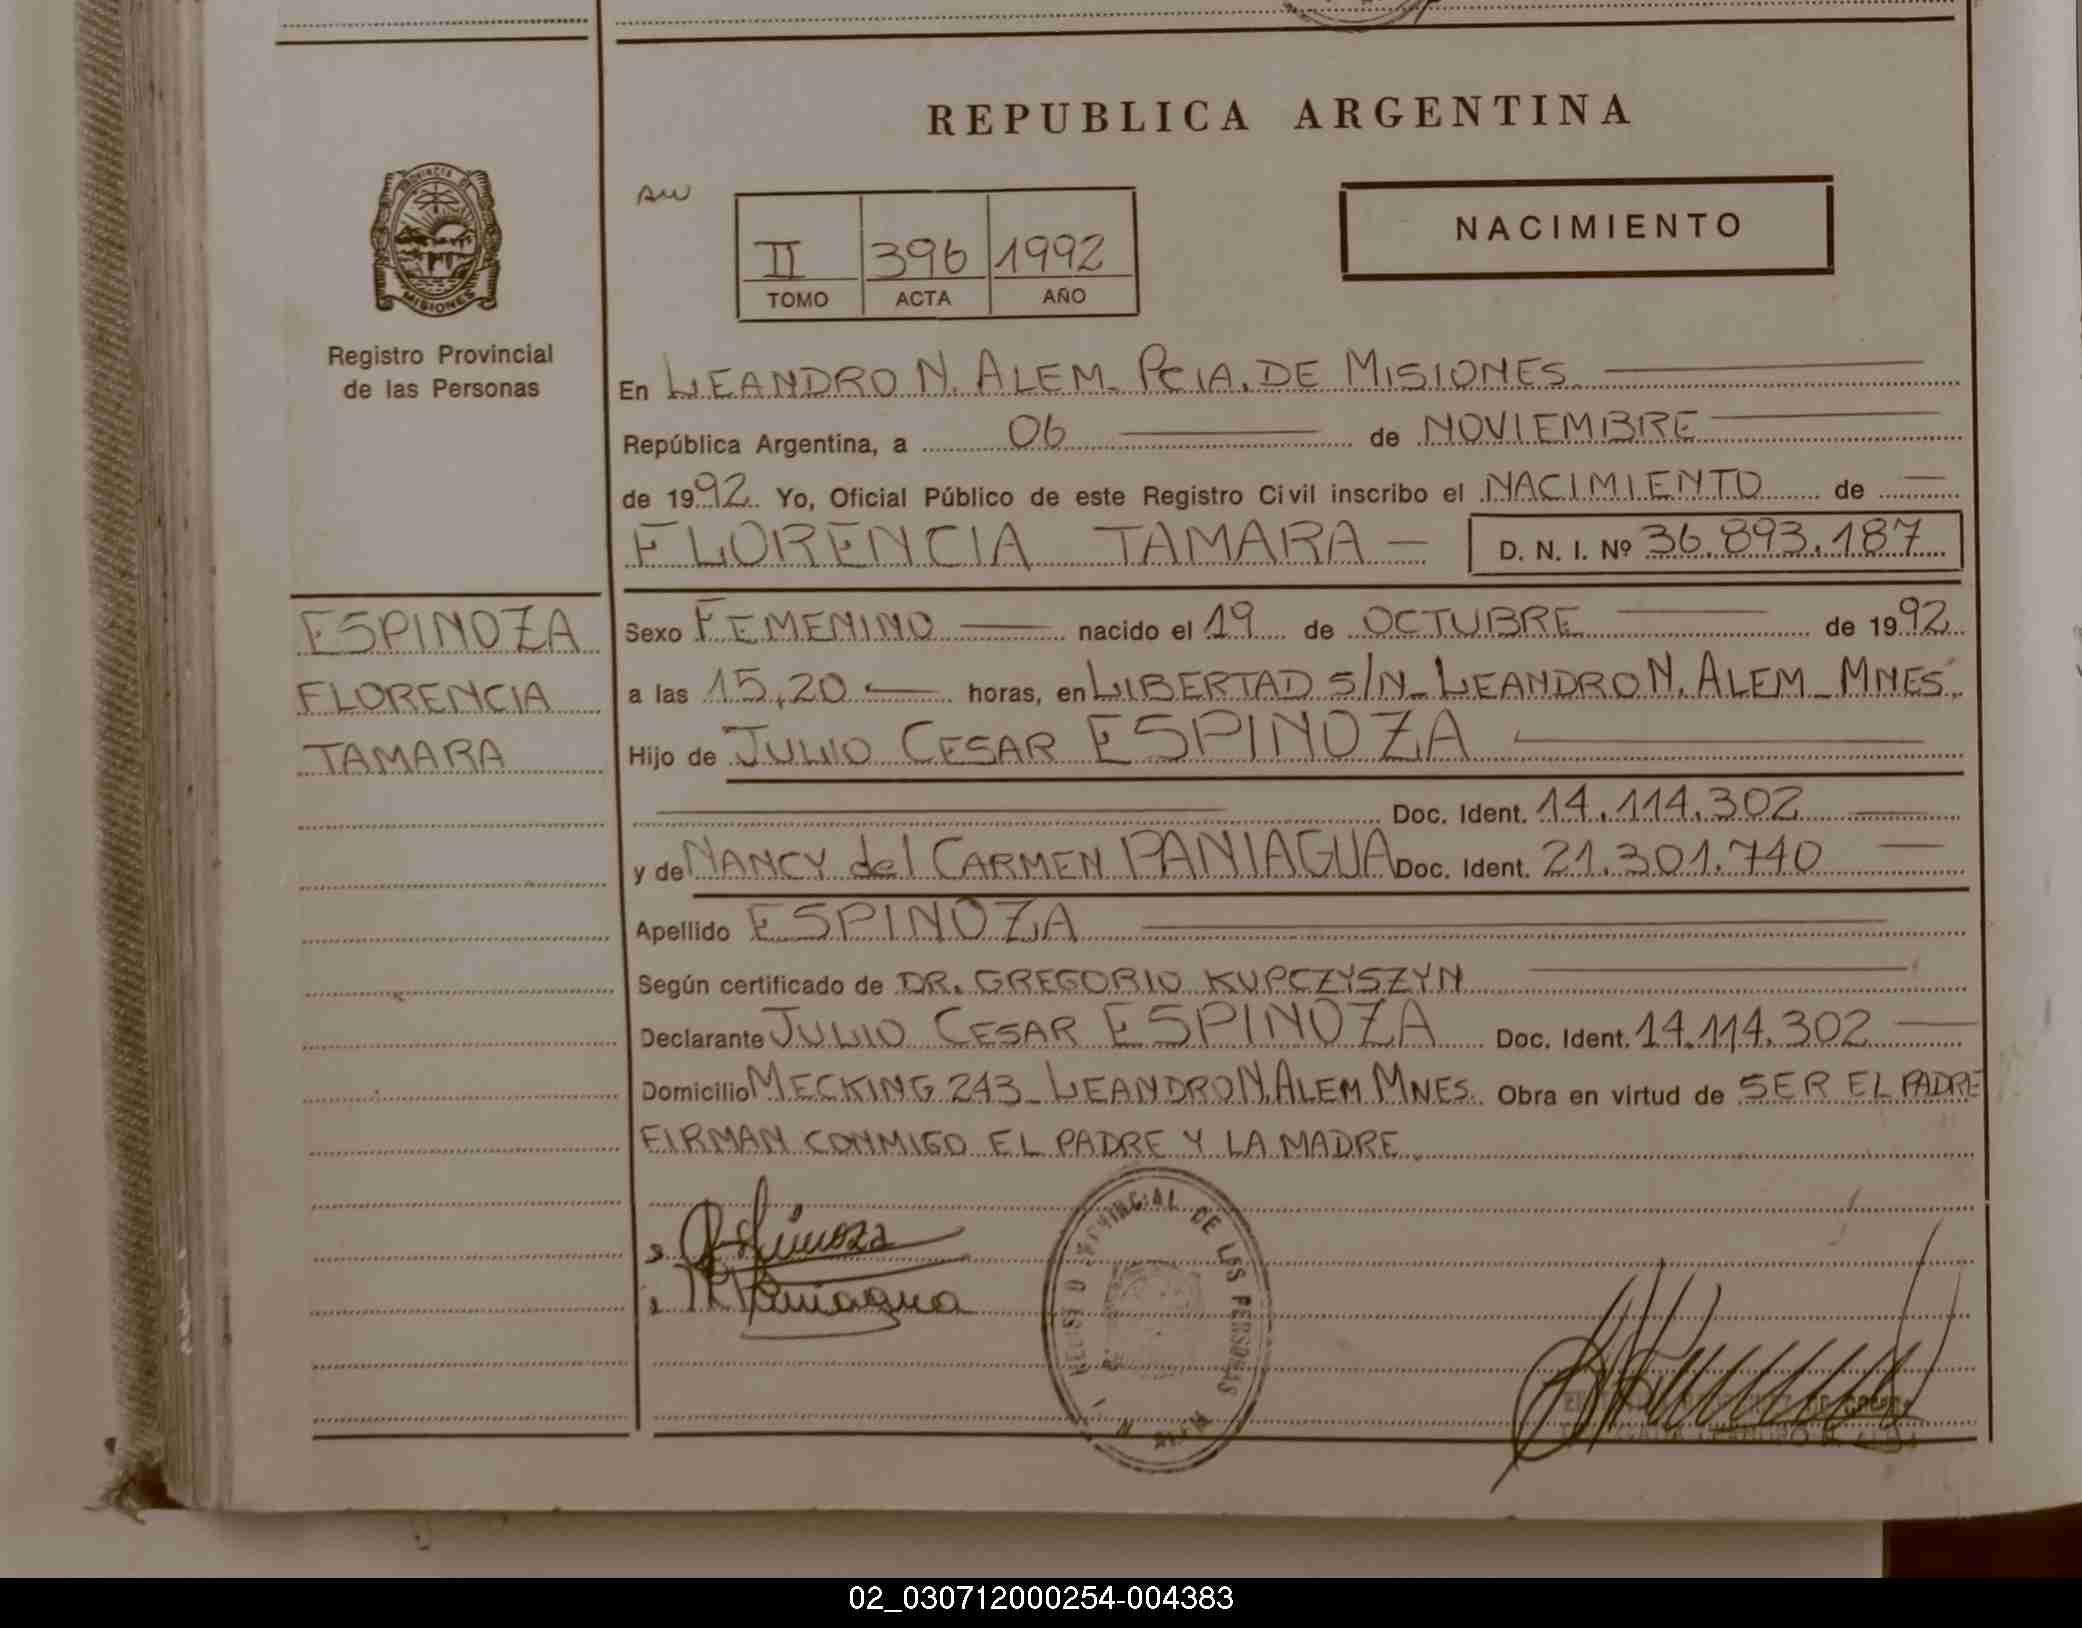 REPUBLICA ARGENTINA
PROVINCIA DE
MISIONES
Registro Provincial
de las Personas
AW
II 396 1992
TOMO ACTA AÑO
NACIMIENTO
En LEANDRO N. ALEM - PCIA. DE MISIONES
República Argentina, a 06 de NOVIEMBRE
de 1992 Yo, Oficial Público de este Registro Civil inscribo el NACIMIENTO de
FLORENCIA TAMARA — D. N. I. Nº 36.893.187
ESPINOZA
FLORENCIA
TAMARA
Sexo FEMENINO nacido el 19 de OCTUBRE de 1992
a las 15,20 horas, en LIBERTAD S/N - LEANDRO N. ALEM - MNES.
Hijo de JULIO CESAR ESPINOZA
Doc. Ident. 14.114.302
y de NANCY del CARMEN PANIAGUA Doc. Ident. 21.301.740
Apellido ESPINOZA
Según certificado de DR. GREGORIO KUPCZYSZYN
Declarante JULIO CESAR ESPINOZA Doc. Ident. 14.114.302
Domicilio MECKING 243 - LEANDRO N. ALEM MNES. Obra en virtud de SER EL PADRE
FIRMAN CONMIGO EL PADRE Y LA MADRE
Espinoza
Paniagua
PROVINCIAL DE LAS PERSONAS
N. ALEM
02_030712000254-004383